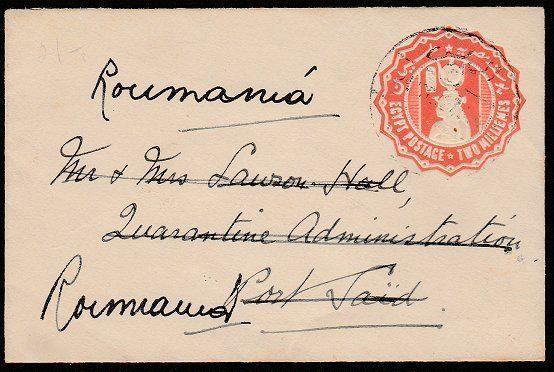 Roumania
EGYPT POSTAGE ★ TWO MILLIEMES
Mr & Mrs Lawson-Hall,
Quarantine Administration
Roumania Port Saïd.